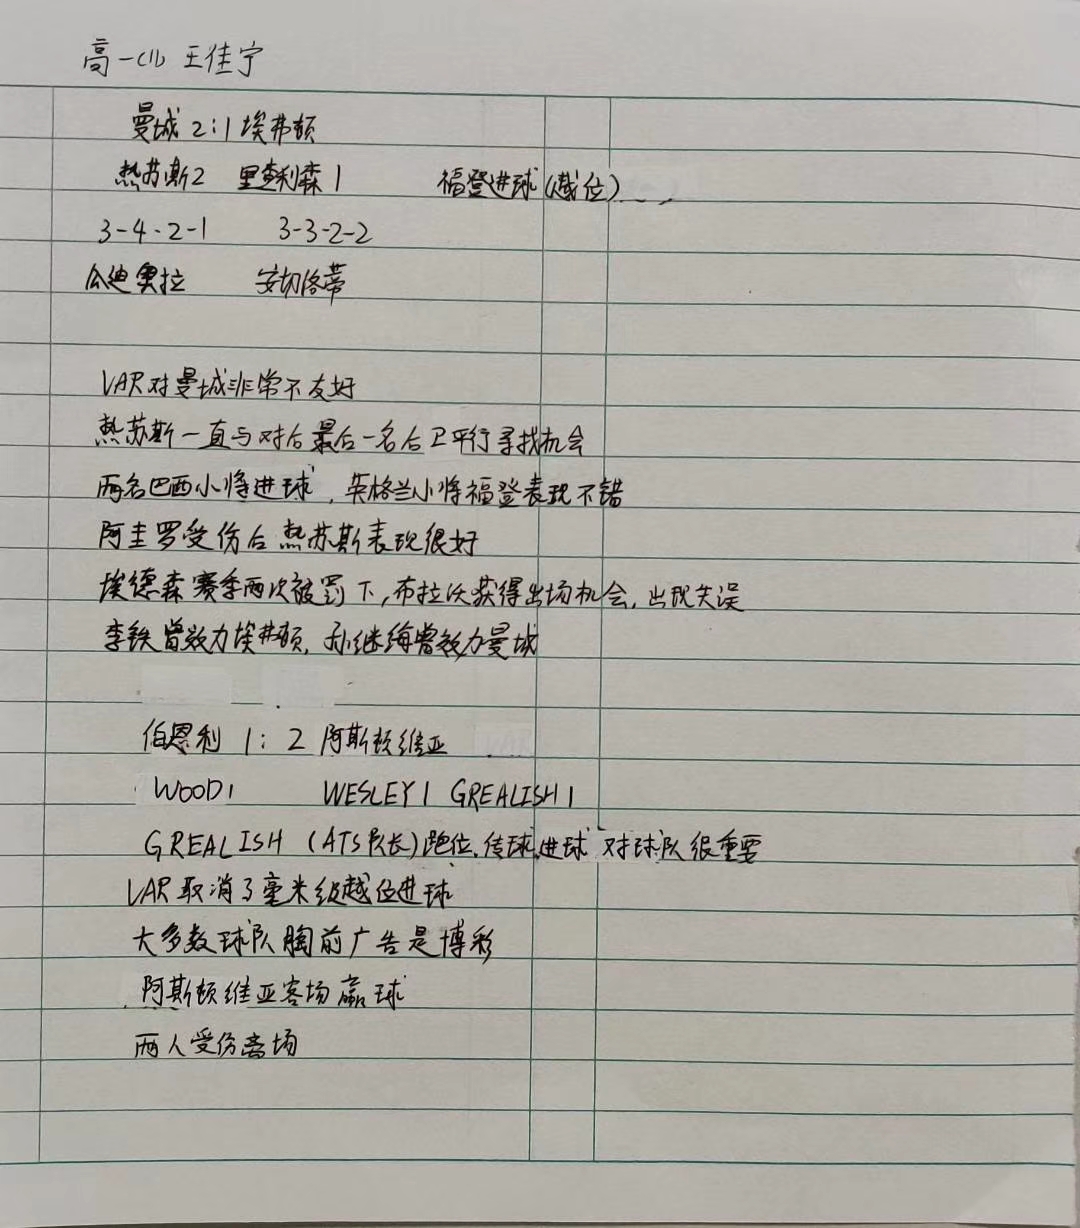 高一(1) 王佳宁
曼城 2:1 埃弗顿
热苏斯2 里查利森1 福登进球(越位)
3-4-2-1 3-3-2-2
瓜迪奥拉 安切洛蒂
VAR对曼城非常不友好
热苏斯一直与对后最后一名后卫平行寻找机会
两名巴西小将进球,英格兰小将福登表现不错
阿圭罗受伤后热苏斯表现很好
埃德森赛季两次被罚下,布拉沃获得出场机会,出现失误
李铁曾效力埃弗顿,孙继海曾效力曼城
伯恩利 1:2 阿斯顿维亚
WOOD1 WESLEY1 GREALISH1
GREALISH (ATS队长)跑位、传球、进球 对球队很重要
VAR取消了毫米级越位进球
大多数球队胸前广告是博彩
阿斯顿维亚客场赢球
两人受伤离场